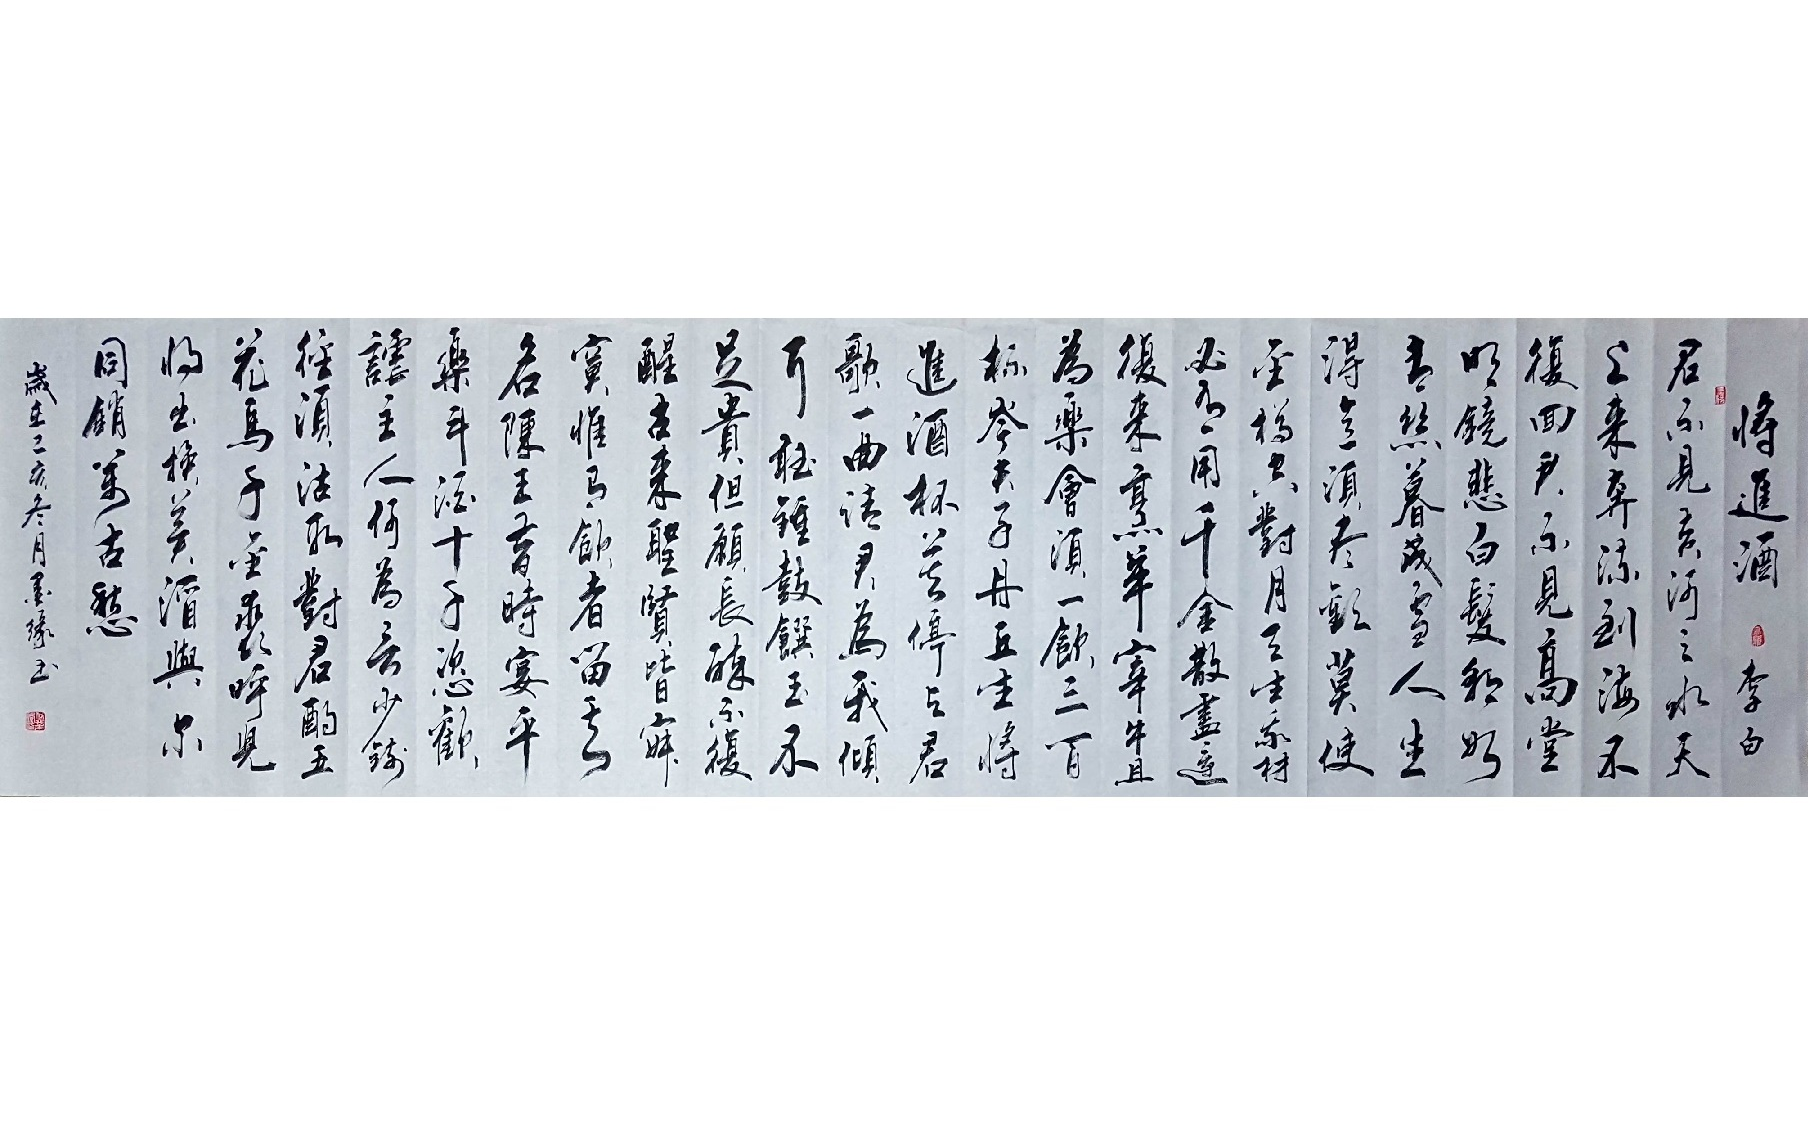 將進酒 李白
君不見黃河之水天
上来奔流到海不
復回君不見高堂
明鏡悲白髮朝如
青絲暮成雪人生
得意須尽歡莫使
金樽空對月天生我材
必有用千金散盡還
復来烹羊宰牛且
為樂會須一飲三百
杯岑夫子丹丘生將
進酒杯莫停与君
歌一曲請君為我傾
耳聽鐘鼓饌玉不
足貴但願長醉不復
醒古来聖賢皆寂
寞惟有飲者留其
名陳王昔時宴平
樂斗酒十千恣歡
謔主人何為言少錢
徑須沽取對君酌五
花馬千金裘呼兒
將出換美酒與尔
同銷萬古愁
歲在己亥冬月墨緣书